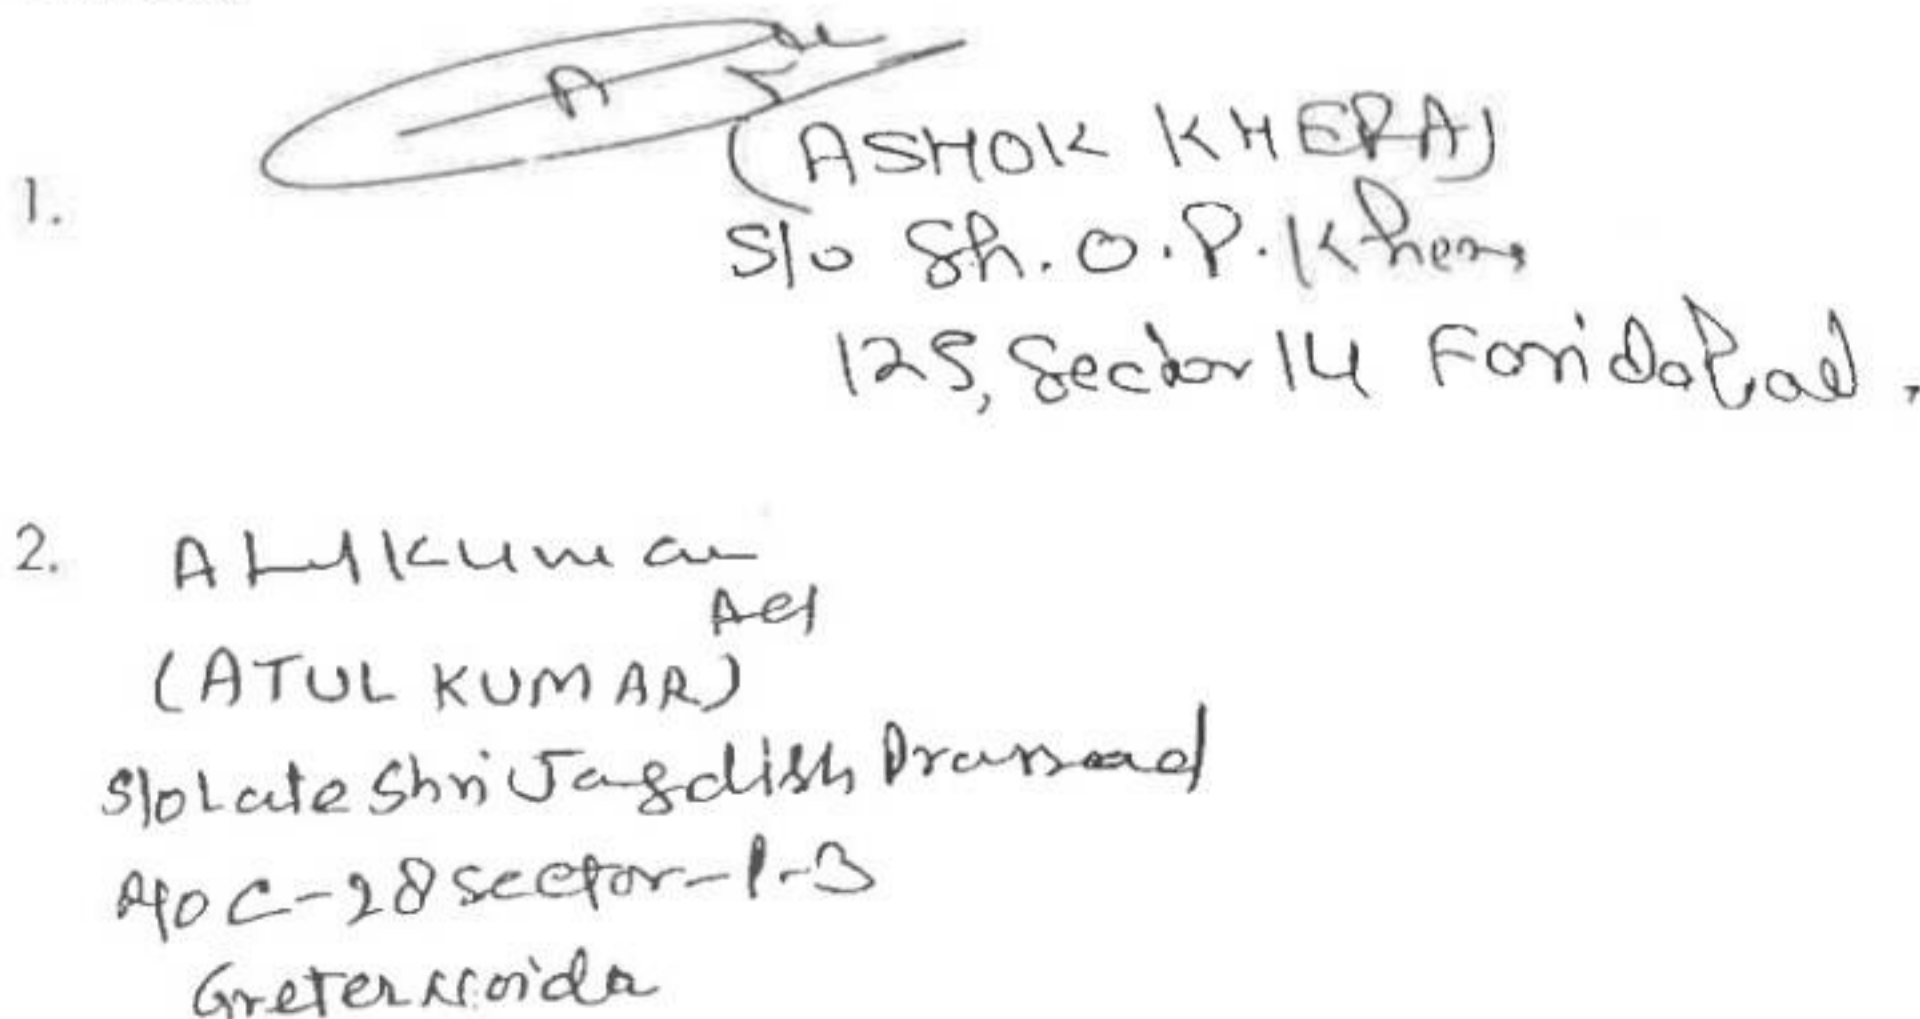 1.
(ASHOK KHERA)
S/o Sh. O.P. Khera
125, Sector 14 Faridabad.
2. Atul Kumar
(ATUL KUMAR)
S/o Late Shri Jagdish Prasad
R/o C-28 sector-P-3
Greter Noida